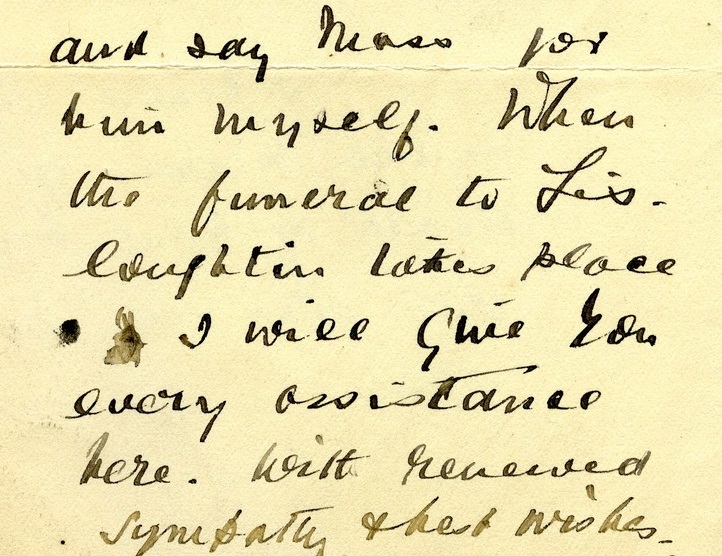 and say Mass for
him myself. When
the funeral to Lis-
loughtin takes place
I will give you
every assistance
here. With renewed
sympathy & best wishes